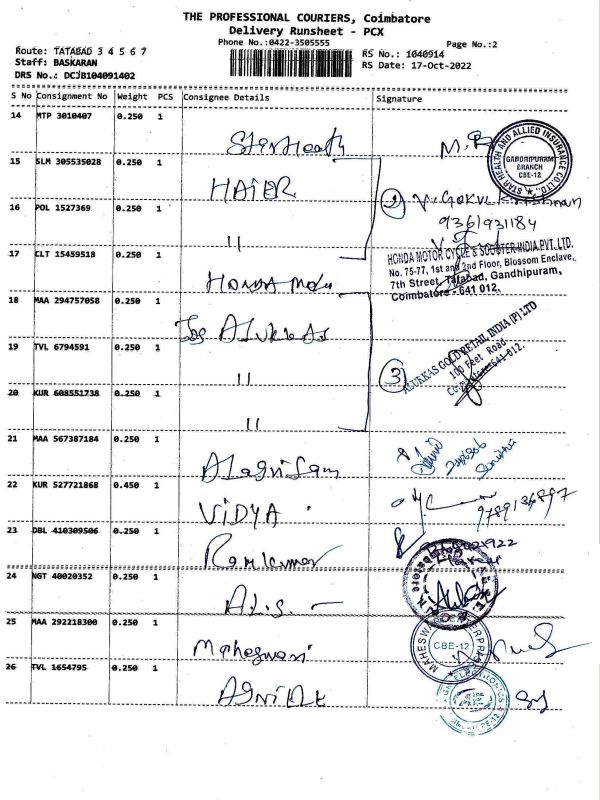 THE PROFESSIONAL COURIERS, Coimbatore
Delivery Runsheet - PCX
Phone No.:0422-3505555
Page No.:2
Route: TATABAD 3 4 5 6 7
RS No.: 1040914
Staff: BASKARAN
RS Date: 17-Oct-2022
DRS No.: DCJB104091402
S No Consignment No Weight PCS Consignee Details Signature
14 MTP 3010407 0.250 1
Star Health
STAR HEALTH AND ALLIED INSURANCE CO.LTD.
GANDHIPURAM
BRANCH
CBE-12
15 SLM 305535028 0.250 1
HAIER
16 POL 1527369 0.250 1
2
9361931184
11
17 CLT 15459518 0.250 1
HONDA MOTOR CYCLE & SCOOTER INDIA PVT. LTD.
No. 75-77, 1st and 2nd Floor, Blossom Enclave,
7th Street, Tatabad, Gandhipuram,
Coimbatore - 641 012.
HONDA
18 MAA 294757058 0.250 1
Jos ALUKKAS
19 TVL 6794591 0.250 1
3
ALUKKAS GOLD RETAIL INDIA (P) LTD
100 Feet Road
11
20 KUR 608551738 0.250 1
11
21 MAA 567387184 0.250 1
22 KUR 527721868 0.450 1
VIDYA
9789136897
23 DBL 410309506 0.250 1
Ramkumar
24 NGT 40020352 0.250 1
25 MAA 292218300 0.250 1
Maheswari
CBE-12
26 TVL 1654795 0.250 1